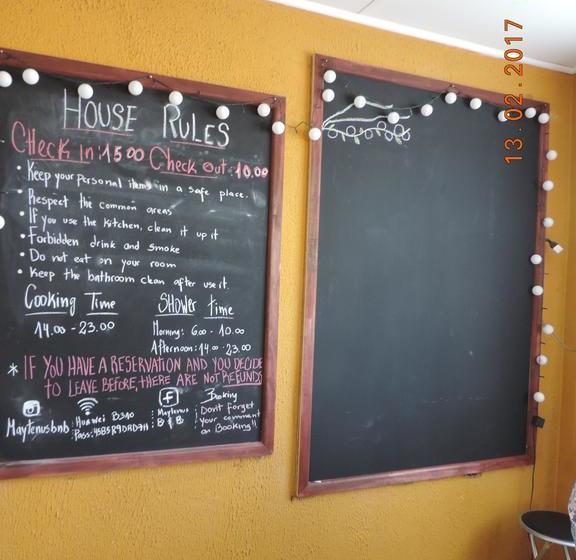 HOUSE RULES
Check in: 15.00 Check out: 10.00
• Keep your personal items in a safe place.
• Respect the common areas
• If you use the kitchen, clean it up it
• Forbidden drink and smoke
• Do not eat on your room
• Keep the bathroom clean after use it.
Cooking Time
14.00 - 23.00
SHower time
Morning: 6.00 - 10.00
Afternoon: 14.00 - 23.00
* IF YOU HAVE A RESERVATION AND YOU DECIDE
to LEAVE BEFORE, tHERE ARE NOT REFUNDS
Maytenusbnb
Huawei B310
Maytenus
B & B
Booking
Dont forget
your comment
on Booking!!
13.02.2017